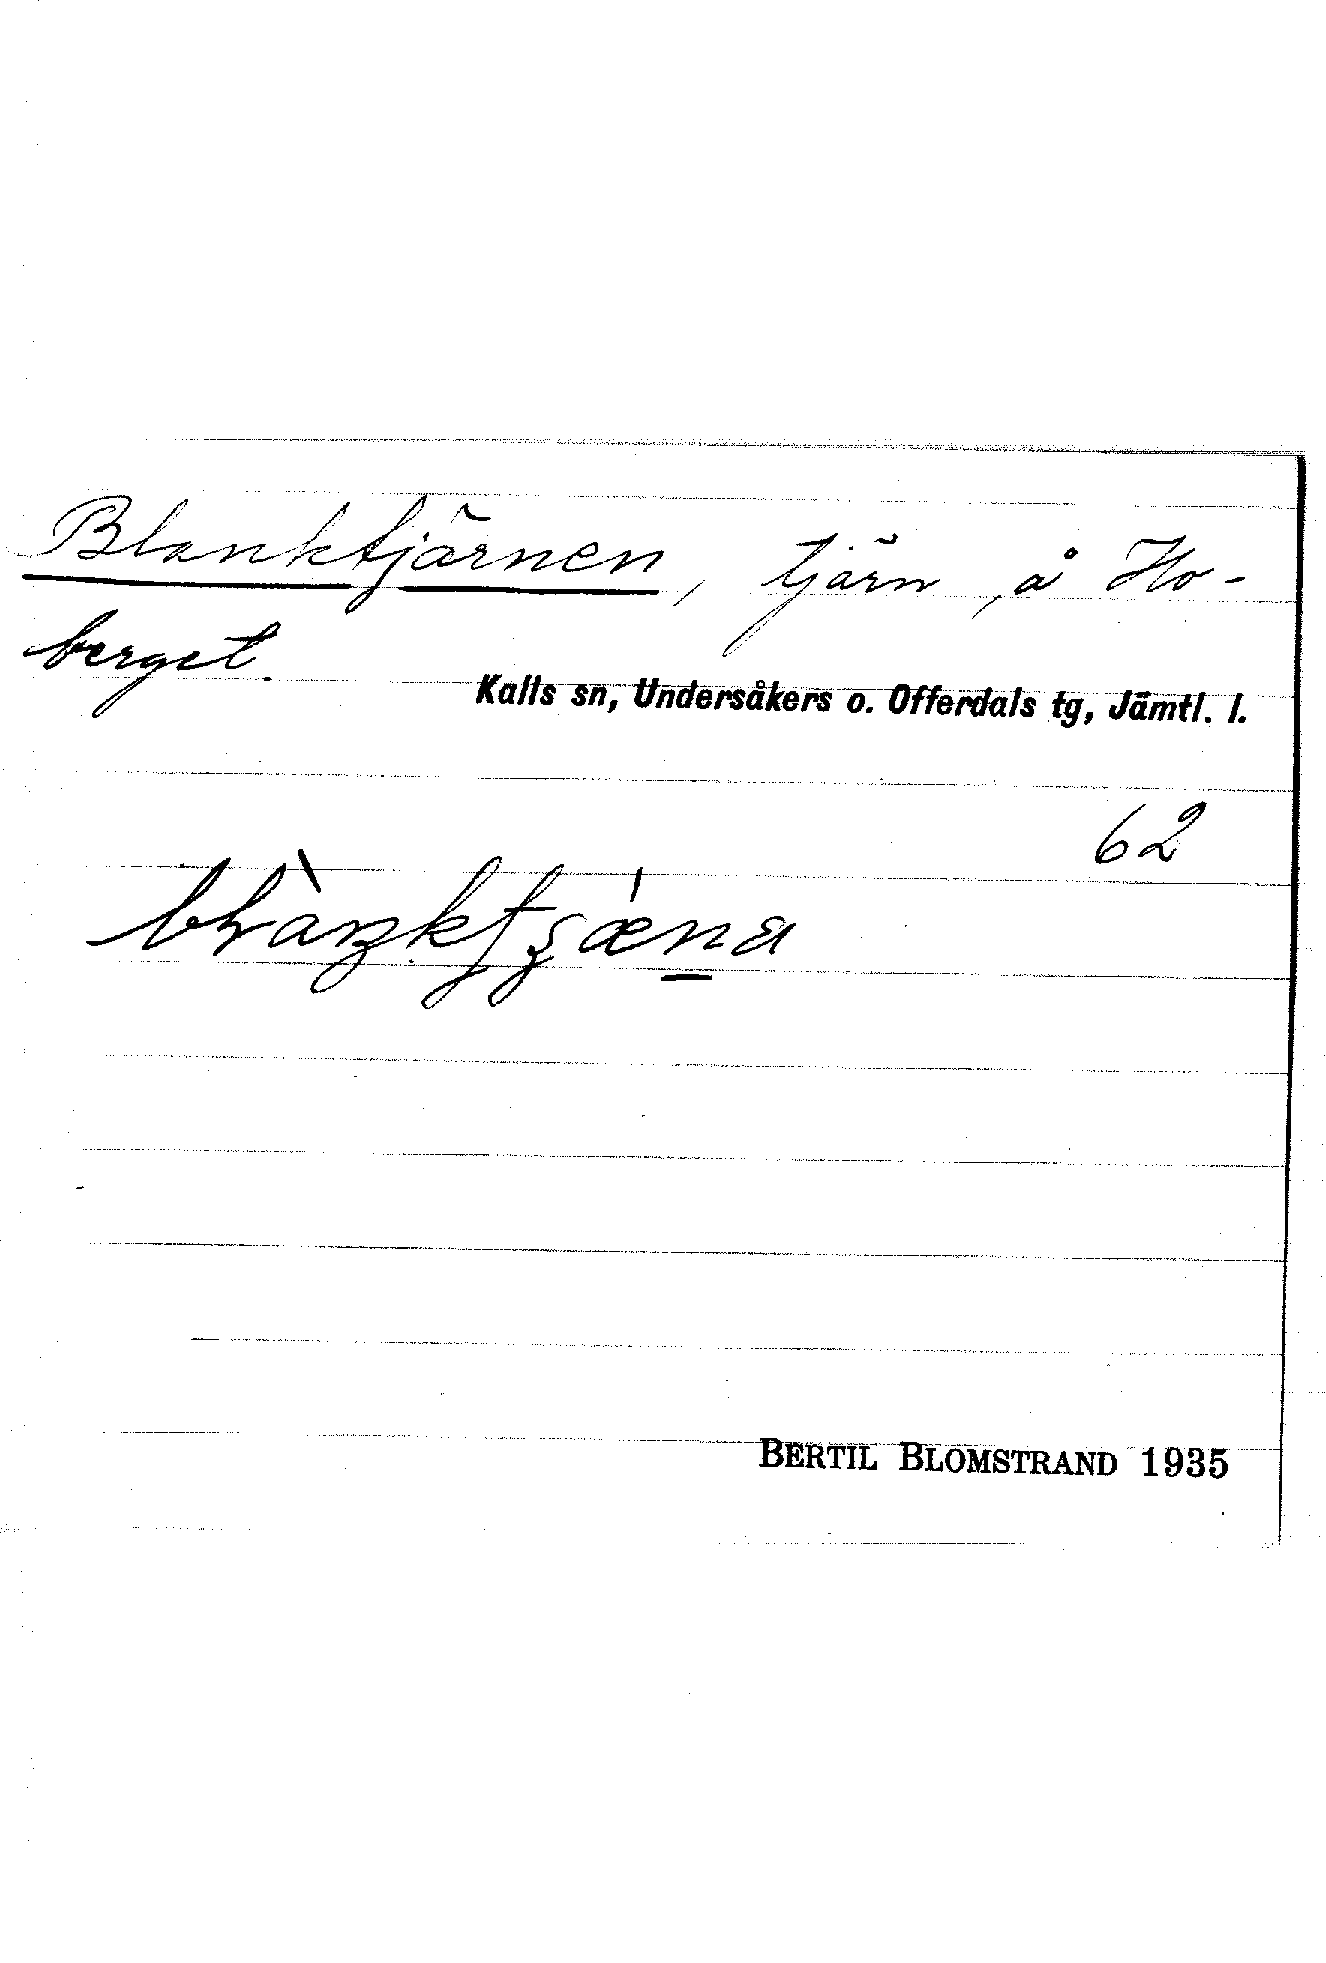 Blanktjärnen, tjärn, å Ho-
berget.
Kalls sn, Undersåkers o. Offerdals tg, Jämtl. l.
62
BERTIL BLOMSTRAND 1935